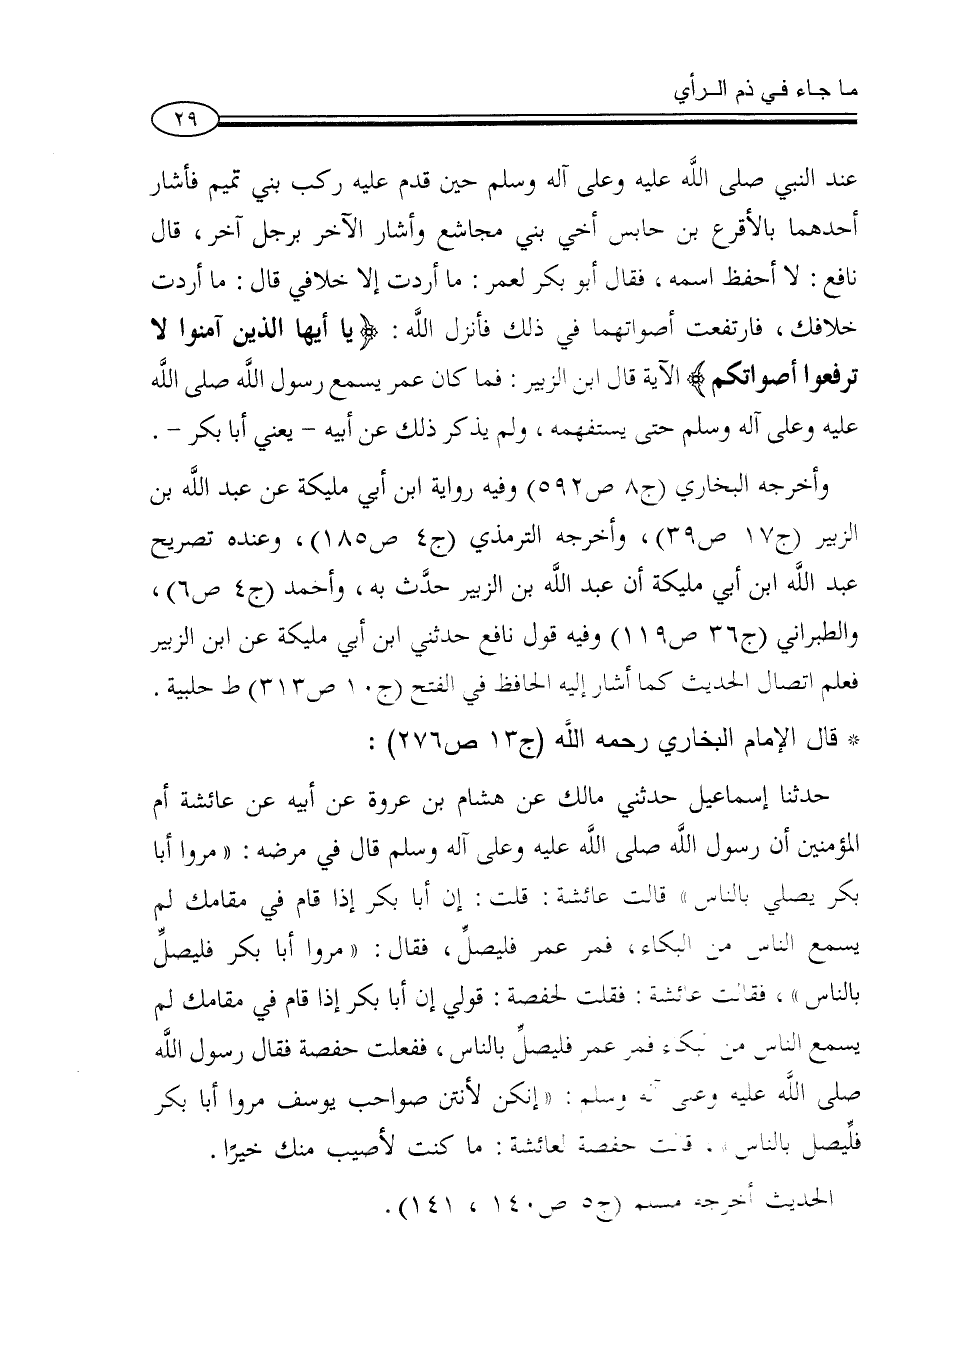 ما جاء في ذم الرأي
٢٩
عند النبي صلى اللَّه عليه وعلى آله وسلم حين قدم عليه ركب بني تميم فأشار
أحدهما بالأقرع بن حابس أخي بني مجاشع وأشار الآخر برجل آخر ، قال
نافع : لا أحفظ اسمه ، فقال أبو بكر لعمر : ما أردت إلا خلافي قال : ما أردت
خلافك ، فارتفعت أصواتهما في ذلك فأنزل اللَّه : ﴿يا أيها الذين آمنوا لا
ترفعوا أصواتكم﴾ الآية قال ابن الزبير : فما كان عمر يسمع رسول اللَّه صلى اللَّه
عليه وعلى آله وسلم حتى يستفهمه ، ولم يذكر ذلك عن أبيه – يعني أبا بكر – .
وأخرجه البخاري (ج٨ ص٥٩٢) وفيه رواية ابن أبي مليكة عن عبد اللَّه بن
الزبير (ج١٧ ص٣٩) ، وأخرجه الترمذي (ج٤ ص١٨٥) ، وعنده تصريح
عبد اللَّه ابن أبي مليكة أن عبد اللَّه بن الزبير حدَّث به ، وأحمد (ج٤ ص٦) ،
والطبراني (ج٣٦ ص١١٩) وفيه قول نافع حدثني ابن أبي مليكة عن ابن الزبير
فعلم اتصال الحديث كما أشار إليه الحافظ في الفتح (ج١٠ ص٣١٣) ط حلبية .
* قال الإمام البخاري رحمه اللَّه (ج١٣ ص٢٧٦) :
حدثنا إسماعيل حدثني مالك عن هشام بن عروة عن أبيه عن عائشة أم
المؤمنين أن رسول اللَّه صلى اللَّه عليه وعلى آله وسلم قال في مرضه : « مروا أبا
بكر يصلي بالناس » قالت عائشة : قلت : إن أبا بكر إذا قام في مقامك لم
يسمع الناس من البكاء ، فمر عمر فليصلِّ ، فقال : « مروا أبا بكر فليصلِّ
بالناس » ، فقالت عائشة : فقلت لحفصة : قولي إن أبا بكر إذا قام في مقامك لم
يسمع الناس من البكاء فمر عمر فليصلِّ بالناس ، ففعلت حفصة فقال رسول اللَّه
صلى اللَّه عليه وعلى آله وسلم : « إنكن لأنتن صواحب يوسف مروا أبا بكر
فلِّيصل بالناس » . قالت حفصة لعائشة : ما كنت لأصيب منك خيرًا .
الحديث أخرجه مسلم (ج٥ ص١٤٠ ، ١٤١) .